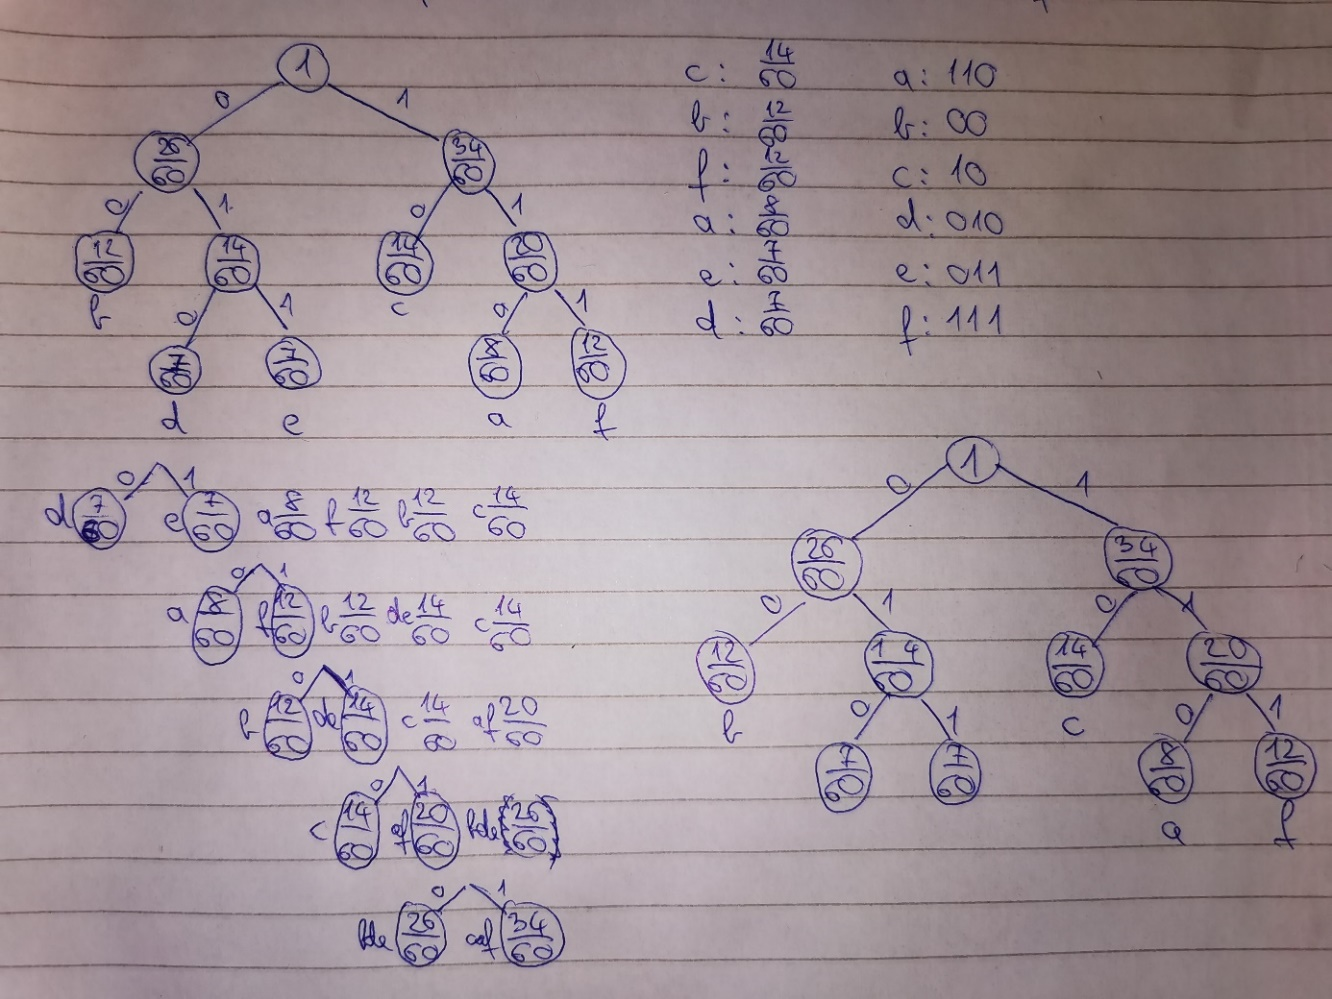 1
0 1
26/60 34/60
0 1 0 1
12/60 14/60 14/60 20/60
b c
0 1 0 1
7/60 7/60 8/60 12/60
d e a f
c: 14/60 a: 110
b: 12/60 b: 00
f: 12/60 c: 10
a: 8/60 d: 010
e: 7/60 e: 011
d: 7/60 f: 111
0 1
d 7/60 e 7/60 a 8/60 f 12/60 b 12/60 c 14/60
0 1
a 8/60 f 12/60 b 12/60 de 14/60 c 14/60
0 1
b 12/60 de 14/60 c 14/60 af 20/60
0 1
c 14/60 af 20/60 bde 26/60
0 1
bde 26/60 caf 34/60
1
0 1
26/60 34/60
0 1 0 1
12/60 14/60 14/60 20/60
b c
0 1 0 1
7/60 7/60 8/60 12/60
a f